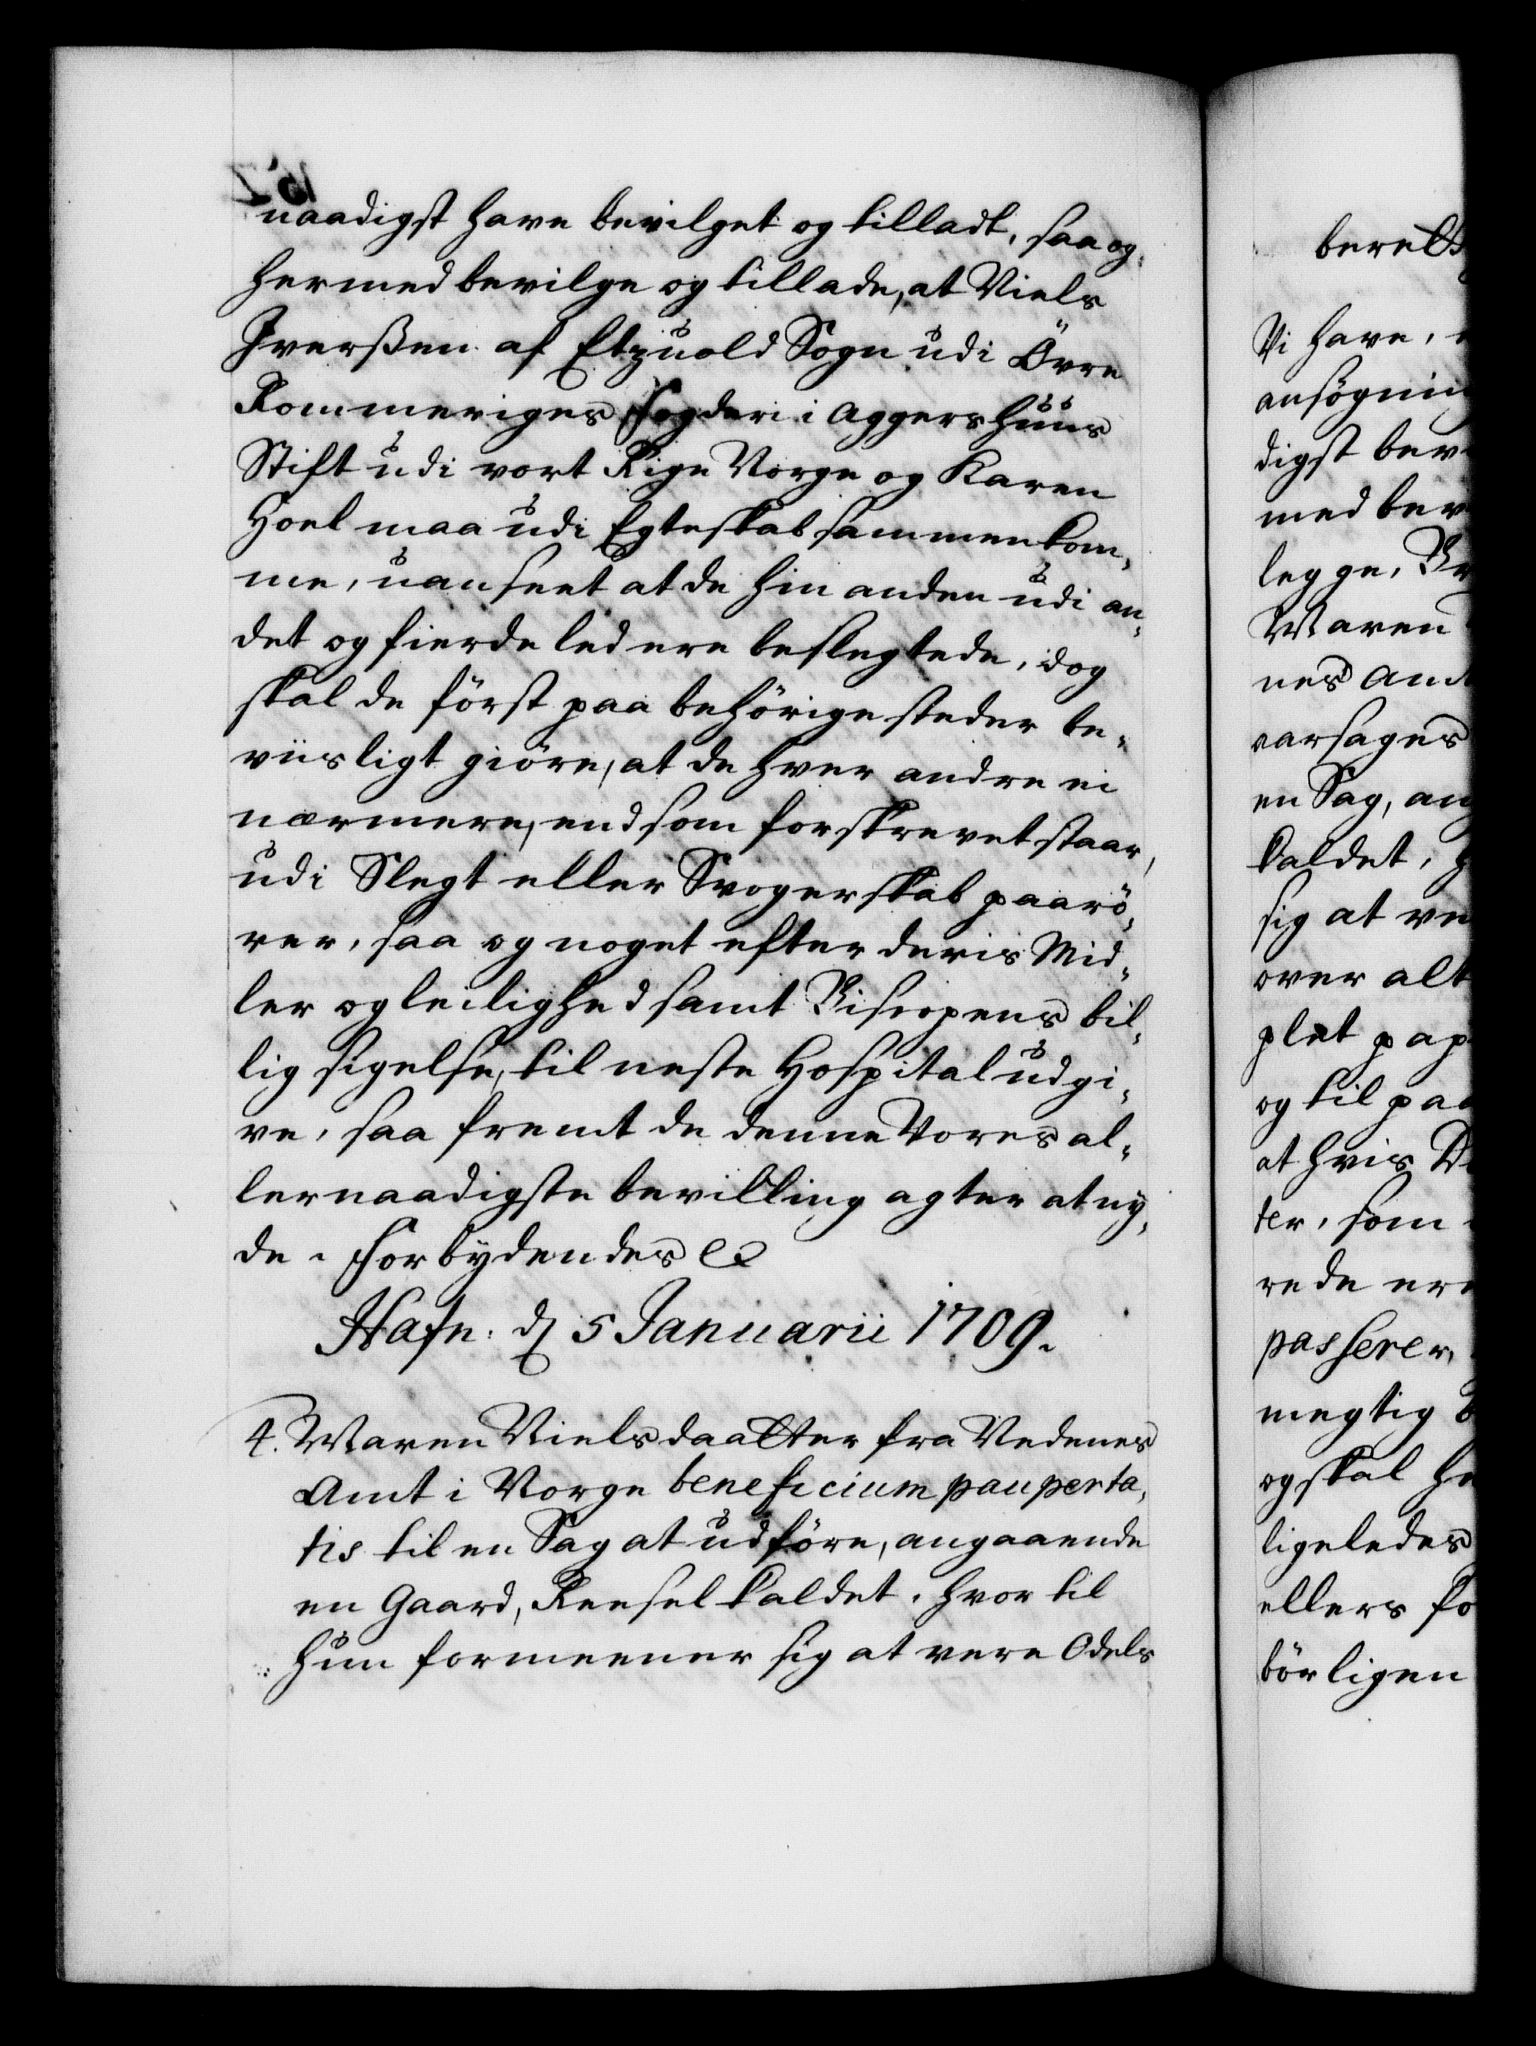 naadigst have bevilget og tilladt, saa og
hermed bevilge og tillade, at Niels
Iverßen af Etzuold Sogn udi Övre
Rommeriges Fogderi i Aggershuus
Stift udi vort Rige Norge og Karen
Hoel maa udi Egteskab sammenkom-
me, uanseet at de hin anden udi an-
det og fierde led ere beslegtede, dog
skal de först paa behörige steder be-
viisligt giöre, at de hver andre ei
nærmere, end som forskrevet staar,
udi Slegt eller Svogerskab paarö-
rer, saa og noget efter deris Mid-
ler og leilighed samt Biscopens bil-
lig sigelse, til neste Hospital udgi-
ve, saa fremt de denne Vores al-
lernaadigste bevilling agter at ny-
de. Forbydendes &c
Hafn: d 5 Januarii 1709.
4. Maren Nielsdaatter fra Nedenes
Amt i Norge beneficium pauperta-
tis til en Sag at udföre, angaaende
en Gaard, Reesel kaldet, hvor til
hun formeener sig at vere Odels
berett
Vi have,
ansögnin
digst bev
med bev
legge,
Maren
nes Amt
aarsages
en Sag, an
kaldet,
sig at ve
over alt
plet pap
og til paa
at hvis D
ter, som
rede ere
passerer,
megtig
og skal he
ligeledes
ellers fo
börligen